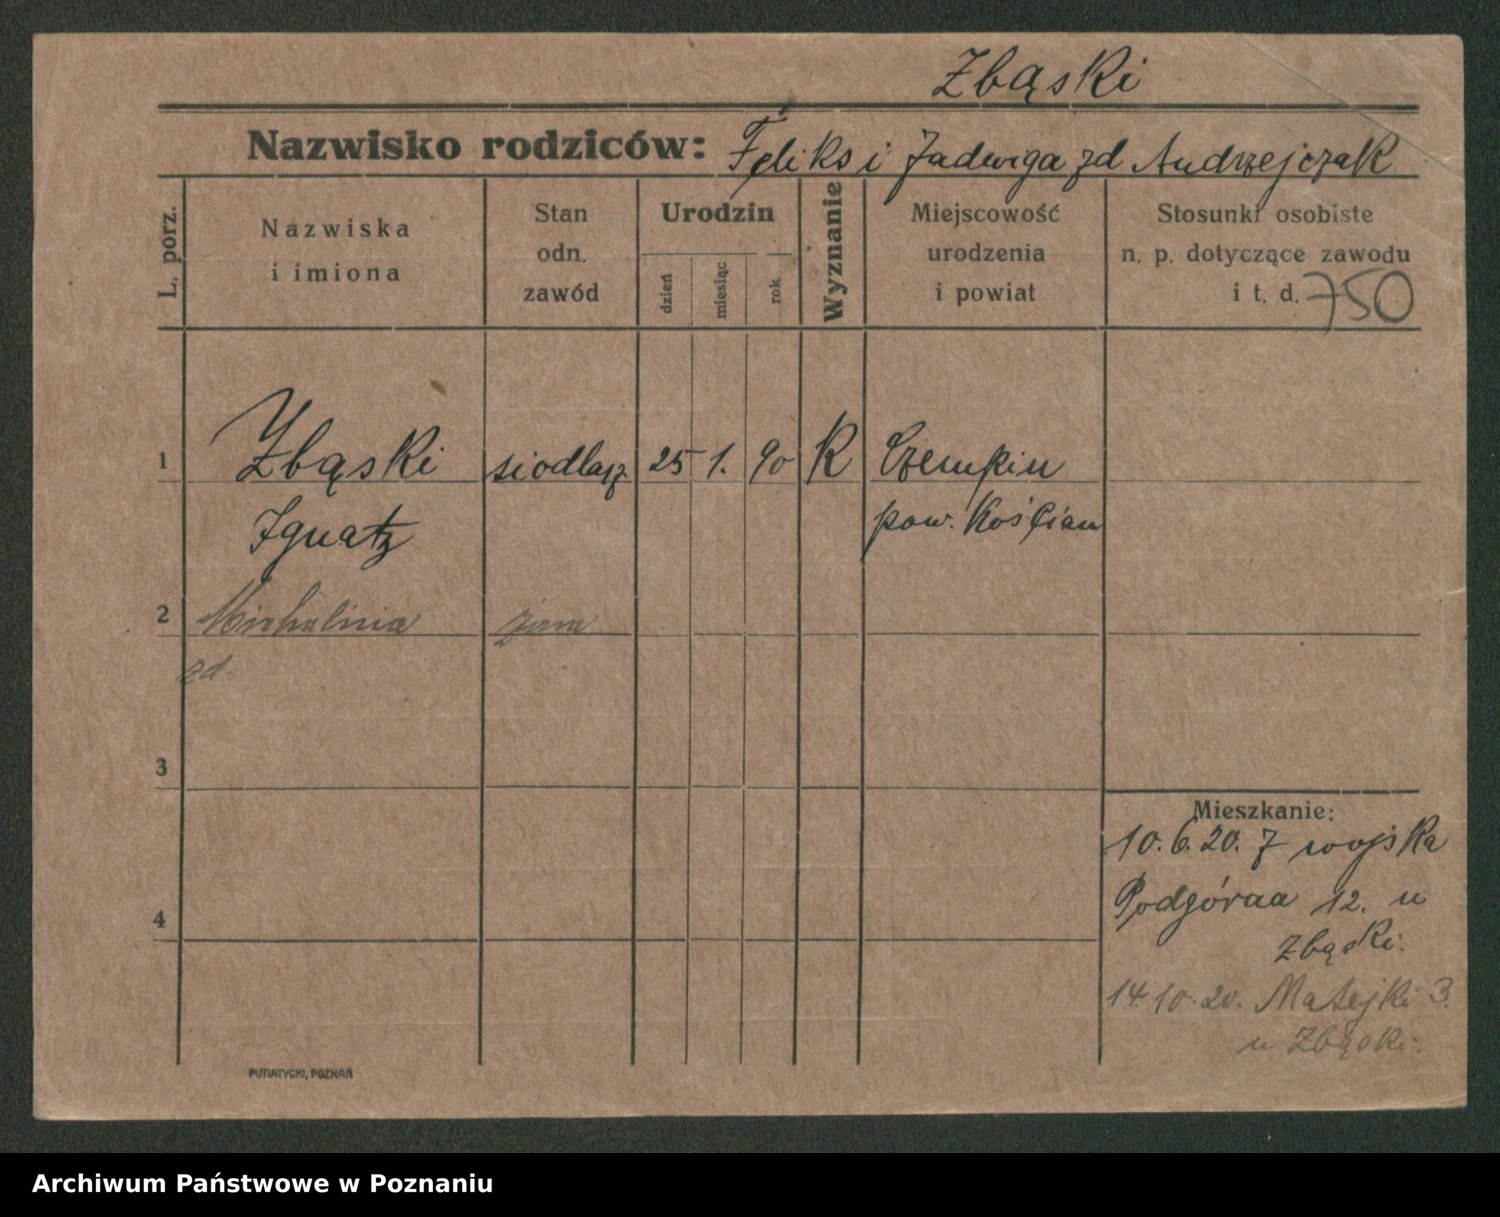 Zbąski
Nazwisko rodziców: Feliks i Jadwiga zd Andrzejczak
L. porz.
Nazwiska
i imiona
Stan
odn.
zawód
Urodzin
dzień
miesiąc
rok
Wyznanie
Miejscowość
urodzenia
i powiat
Stosunki osobiste
n. p. dotyczące zawodu
i t. d. 750
1 Zbąski siodlarz 25 1. 90 K Czempin
Ignatz pow. Kościan
2 Michalina żona
zd.
3
Mieszkanie:
10.6.20. z wojska
Podgórna 12. u
Zbąski.
4
14.10.20. Matejki 3.
u Zbąski.
PUTIATYCKI, POZNAŃ
Archiwum Państwowe w Poznaniu